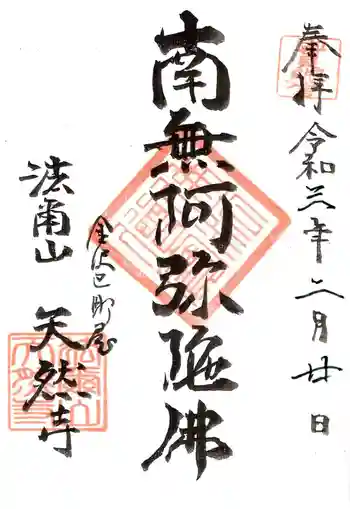 奉拝
令和三年二月廿日
南無阿弥陀佛
金沢巳町屋
法爾山
天然寺